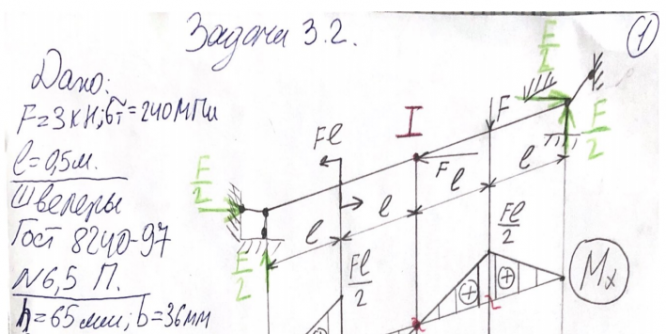 Задача 3.2.
1
Дано:
F=3кН; σт=240МПа
l=0,5м.
Швеллеры
Гост 8240-97
N6,5 П.
h=65мм; b=36мм
F/2
F/2
Fl
I
F
F
F/2
F/2
l
l
l
l
Fl/2
Fl/2
Mx